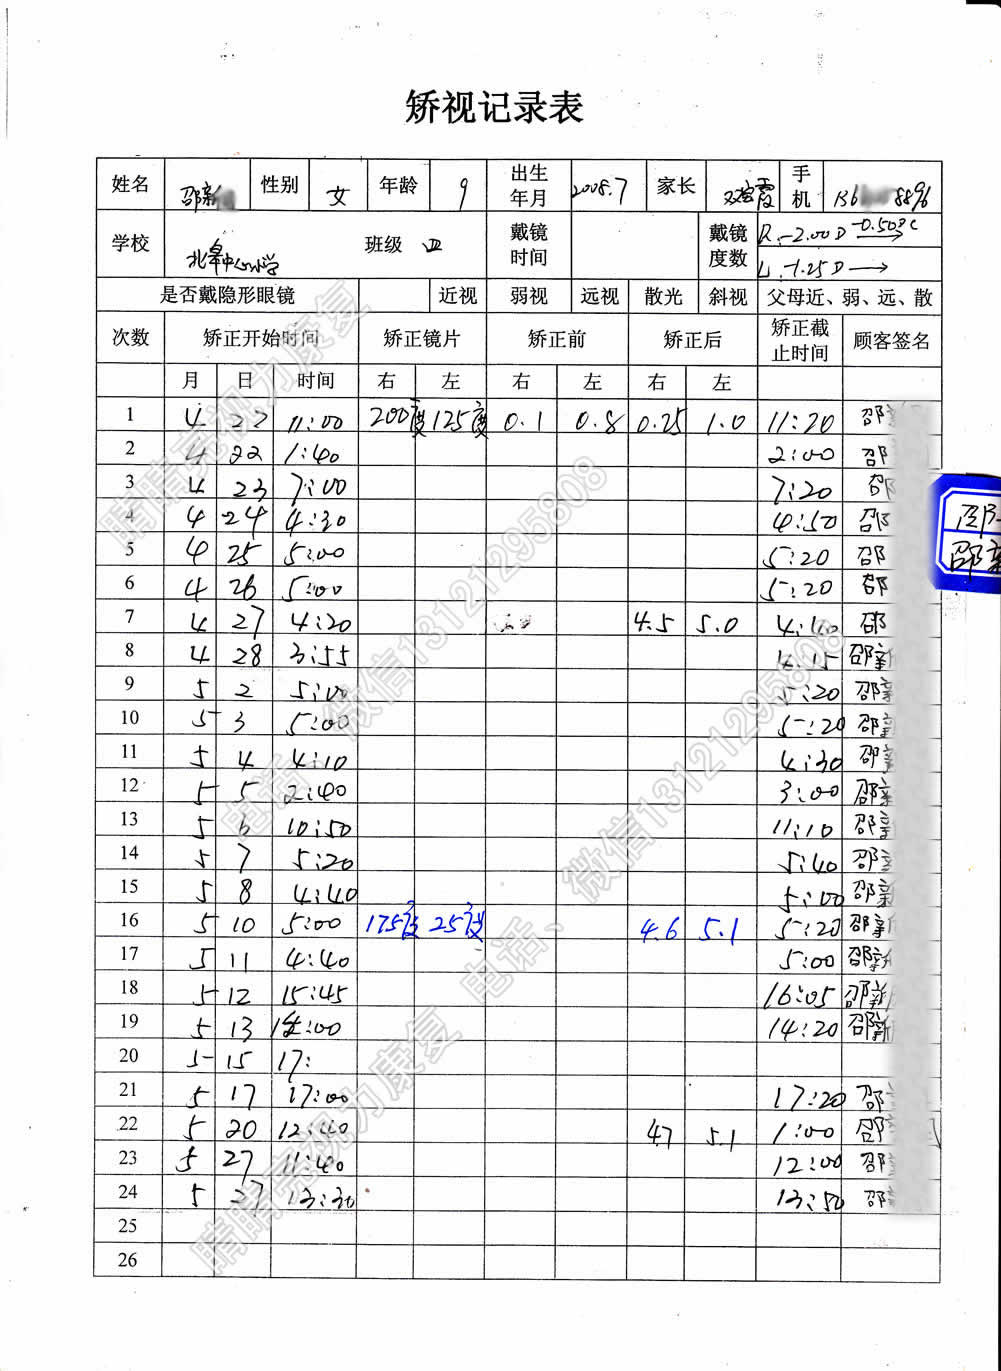 矫视记录表
姓名 邵新 性别 女 年龄 9 出生年月 2008.7 家长 霞 手机 136 8896
学校 北皋中心小学 班级 四 戴镜时间 戴镜度数 R -2.00D -0.50DC
L -1.25D
是否戴隐形眼镜 近视 弱视 远视 散光 斜视 父母近、弱、远、散
次数 矫正开始时间 矫正镜片 矫正前 矫正后 矫正截止时间 顾客签名
月 日 时间 右 左 右 左 右 左
1 4 22 11:00 200度 125度 0.1 0.8 0.25 1.0 11:20 邵
2 4 22 1:40 2:00 邵
3 4 23 7:00 7:20 邵
4 4 24 4:30 4:50 邵
5 4 25 5:00 5:20 邵
6 4 26 5:00 5:20 邵
7 4 27 4:20 4.5 5.0 4:40 邵
8 4 28 3:55 4:15 邵新
9 5 2 5:00 5:20 邵新
10 5 3 5:00 5:20 邵新
11 5 4 4:10 4:30 邵新
12 5 5 2:40 3:00 邵新
13 5 6 10:50 11:10 邵新
14 5 7 5:20 5:40 邵新
15 5 8 4:40 5:00 邵新
16 5 10 5:00 175度 25度 4.6 5.1 5:20 邵新
17 5 11 4:40 5:00 邵新
18 5 12 15:45 16:05 邵新
19 5 13 14:00 14:20 邵新
20 5 15 17:
21 5 17 17:00 17:20 邵
22 5 20 12:40 4.7 5.1 1:00 邵
23 5 27 11:40 12:00 邵
24 5 27 13:30 13:50 邵
25
26
邵
邵新
睛睛亮视力康复 电话、微信13121295808
睛睛亮视力康复 电话、微信13121295808